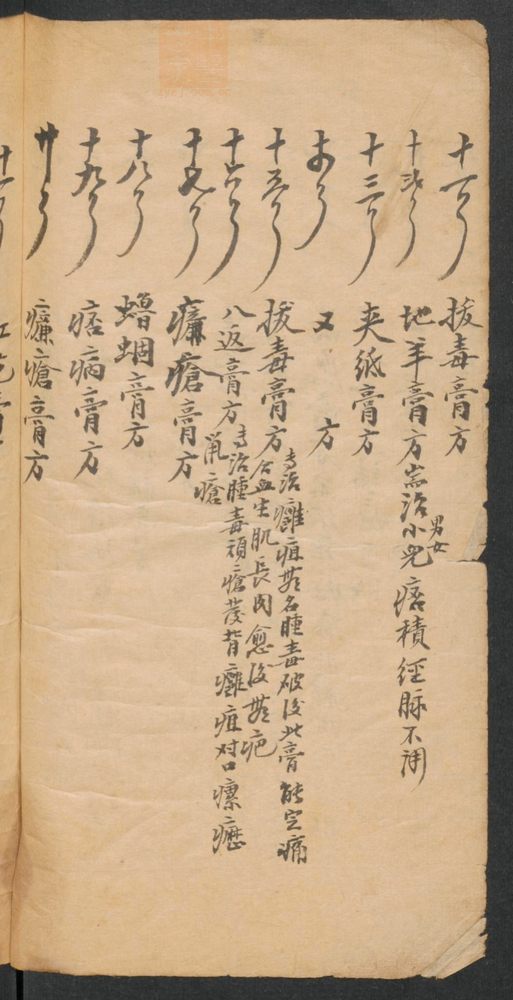 十一号 拔毒膏方
十弍号 地羊膏方 耑治男女小兒痞積經脉不調
十三号 夾紙膏方
十四号 又方
十五号 拔毒膏方
专治癰疽無名腫毒破後此膏能定痛
合血生肌長肉愈後無疤
十六号 八返膏方
专治腫毒頑瘡發背癰疽対口瘰癧
鼠瘡
十七号 臁瘡膏方
十八号 膏方
十九号 痞病膏方
廿号 臁瘡膏方